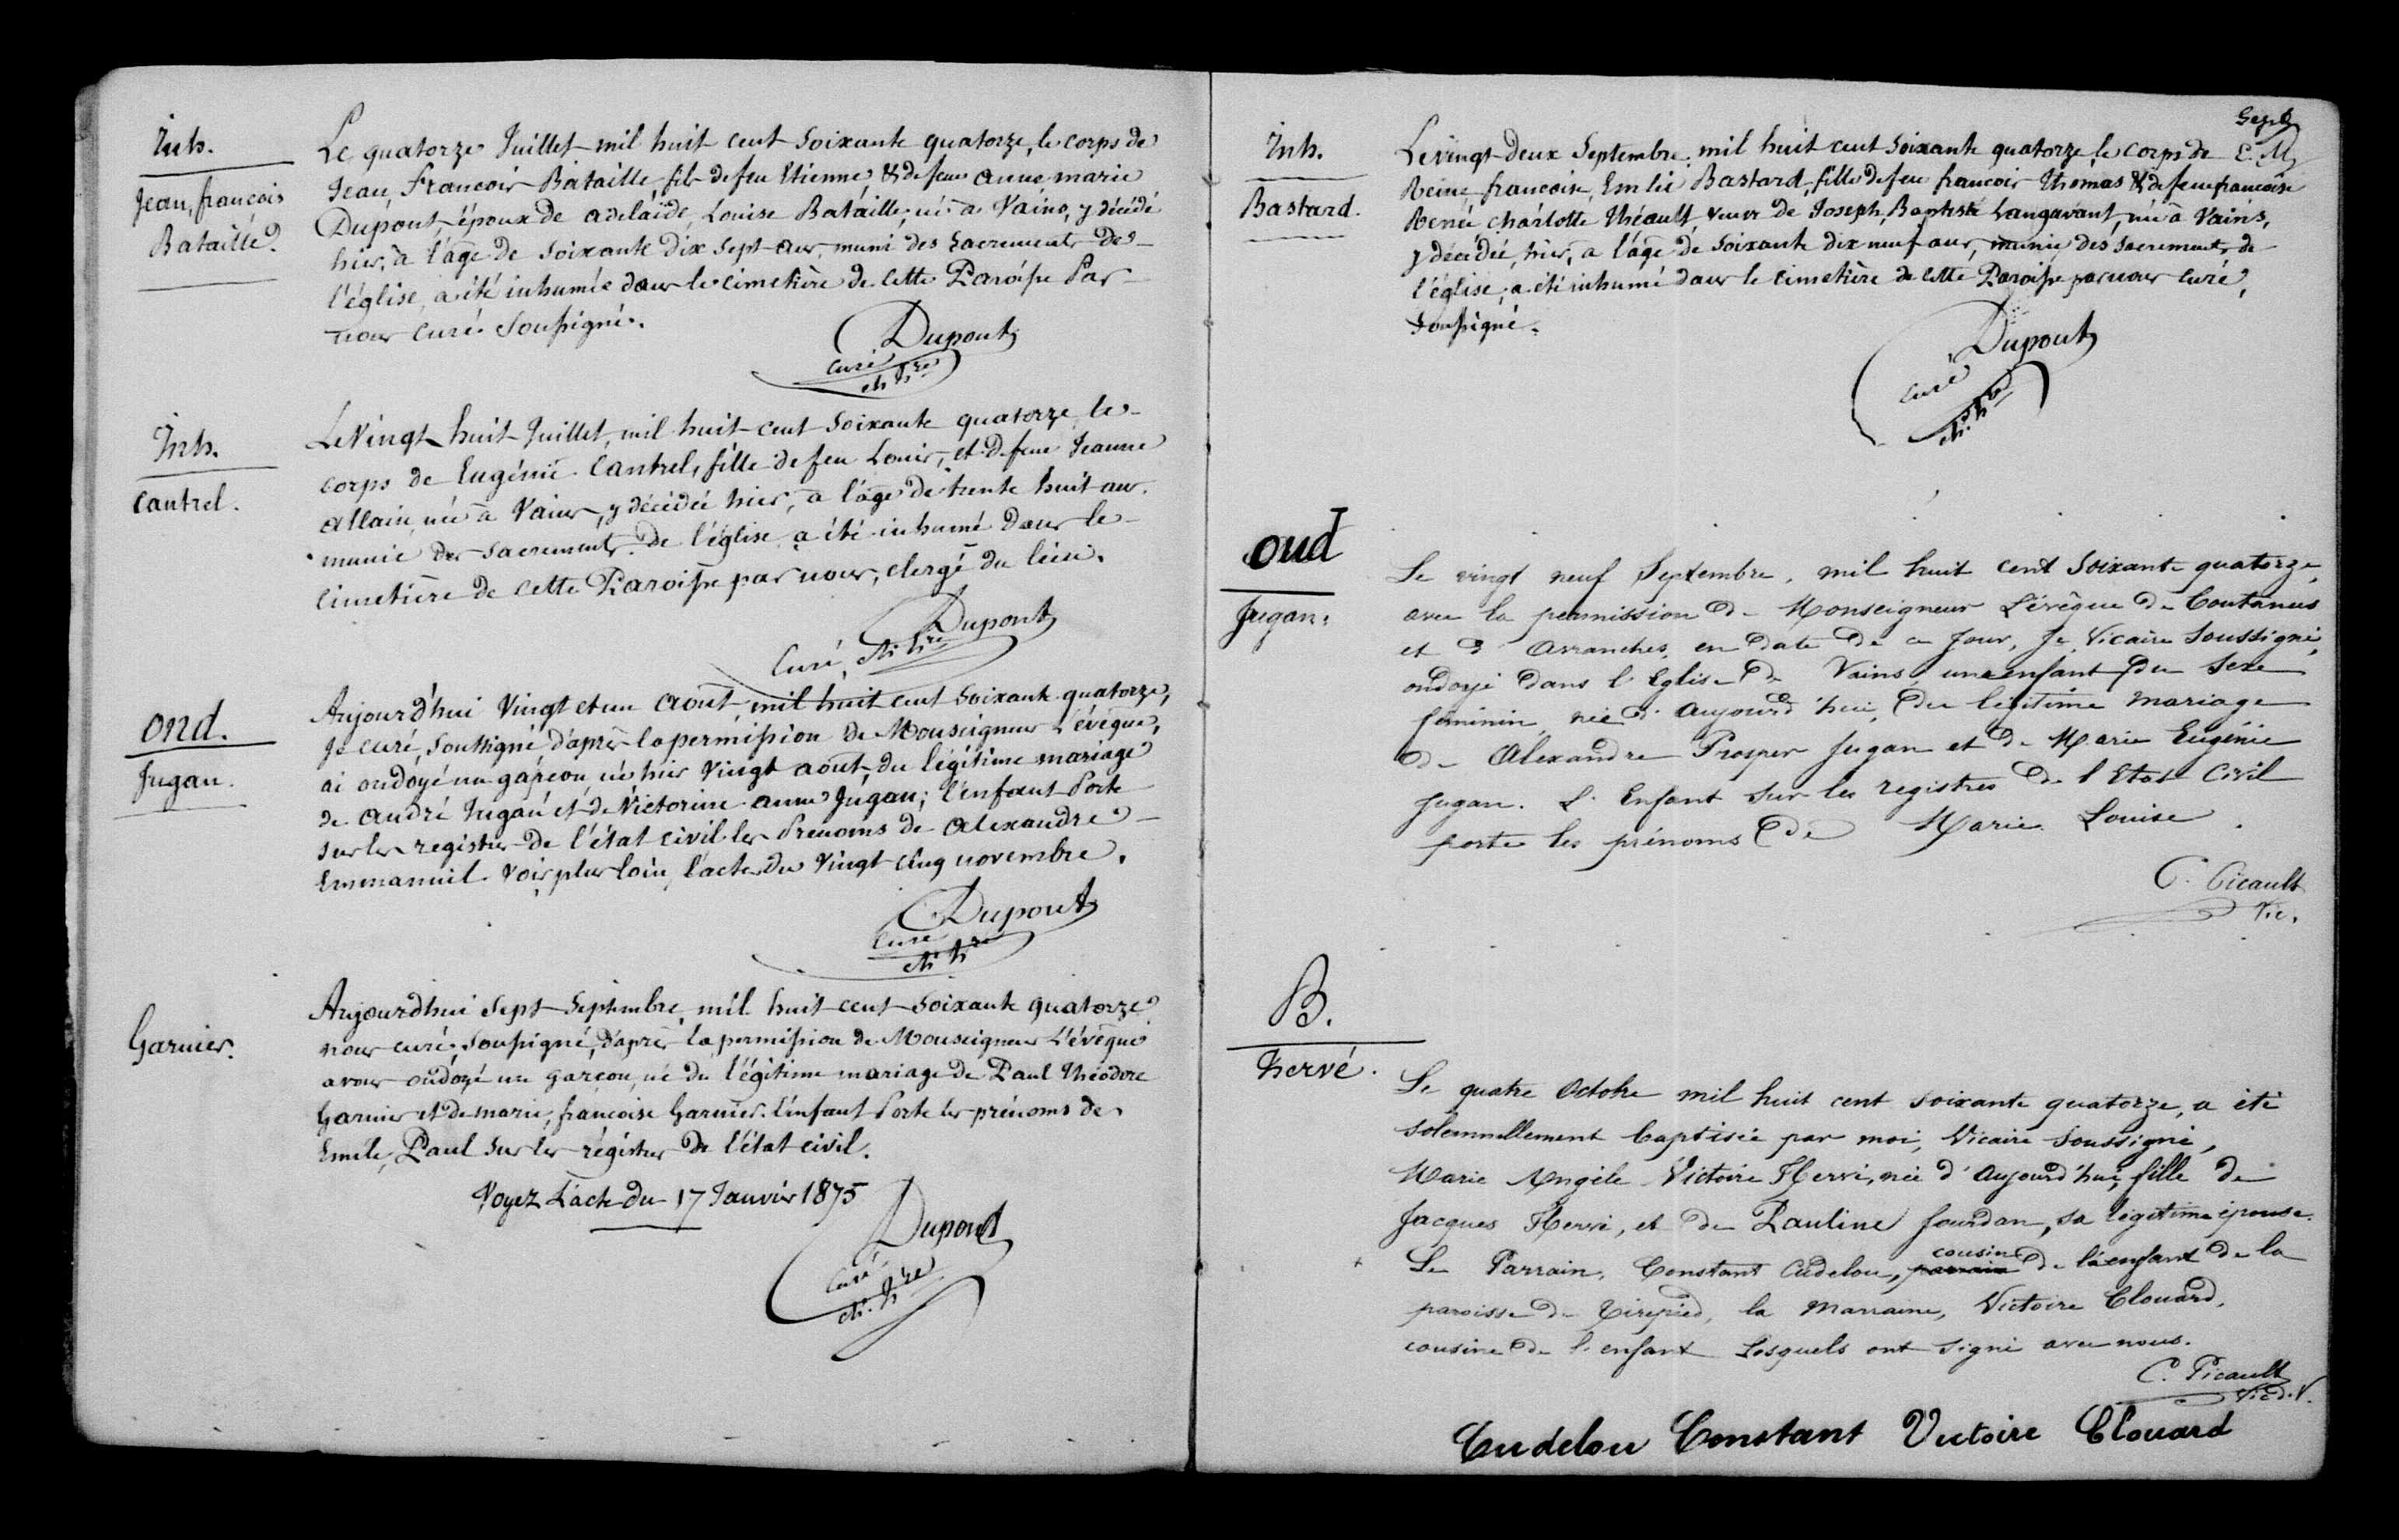 Inh.
Jean, françois
Bataille.
Le quatorze Juillet mil huit cent soixante quatorze, le corps de
Jean, Francois Bataille, fils de feu Etienne & de feue anne marie
Dupont, époux de adelaïde, Louise Bataille, né à Vains, y décédé
hier, à l'âge de soixante dix sept ans, muni des Sacrements de
l'église, a été inhumée dans le cimetière de cette Paroisse Par
nous curé soussigné.
Dupont
curé
ch. hre
Inh.
Cantrel.
Le Vingt huit Juillet, mil huit cent soixante quatorze, le
corps de Eugénie Cantrel, fille de feu Louis, et d feue Jeanne
allain, née à Vains, y décédée hier, à l'âge de trente huit ans.
munie des sacrements de l'église, a été inhumé dans le
cimetière de cette Paroisse par nous, clergé du lieu.
Dupont
Curé, ch. hre
ond.
Jugan.
Aujourd'hui Vingt et un août, mil huit cent soixante quatorze,
Je curé, soussigné d'après la permission de Monseigneur L'évêque,
ai ondoyé un garçon, né hier vingt août, du légitime mariage
de André Jugan et de Victorine anne Jugan; l'enfant Porte
sur les registres de l'état civil les Prenoms de Alexandre
Emmanuel. Voir plus loin, l'acte du Vingt cinq novembre.
Dupont
Curé
ch. hre
Garnier.
Aujourdhui sept Septembre, mil huit cent soixante quatorze
nous curé, soussigné, d'après la permission de Monseigneur L'évêque
avons ondoyé un garçon, né du légitime mariage de Paul Théodore
Garnier et de marie, françoise Garnier. l'enfant Porte les prénoms de
Emile, Paul sur les régistres de l'état civil.
Voyez L'acte du 17 Janvier 1875
Dupont
Curé
ch. hre
Sept
E. M
Inh.
Bastard.
Le vingt deux Septembre, mil huit cent soixante quatorze, le corps de
Reine, françoise, Emilie Bastard, fille de feu françois Thomas & de feue françoise
Renée charlotte Théault, veuve de Joseph, Baptiste Langavant, née à Vains,
y décédée, hier, a l'âge de soixante dix neuf ans, munie des sacrements de
l'église, a été inhumé dans le cimetière de cette Paroisse par nous curé,
soussigné.
Dupont
curé
ch. hre
oud
Jugan.
Le vingt neuf Septembre, mil huit cent soixante quatorze,
avec la permission de Monseigneur L'évêque de Coutances
et d Avranches, en date de ce Jour, Je, Vicaire Soussigné,
ondoyé dans l'Eglise de Vains une enfant du sexe
féminin, née d'aujourd'hui, du légitime mariage
de Alexandre Prosper Jugan et de Marie Eugénie
Jugan. L'Enfant sur les registres de l'Etat Civil
porte les prénoms de Marie Louise.
C. Picault
Vic.
B.
hervé.
Le quatre Octobre mil huit cent soixante quatorze, a été
solennellement baptisée par moi, Vicaire Soussigné,
Marie Angèle Victoire Hervé, née d'aujourd'hui, fille de
Jacques Hervé, et de Pauline Jourdan, sa légitime épouse.
Le Parrain, Constant Cudelou, parrain cousin de l'enfant de la
paroisse de Tirepied, la marraine, Victoire Clouard,
cousine de l'enfant lesquels ont signé avec nous.
C. Picault
Vic. d. V.
Cudelou Constant Victoire Clouard